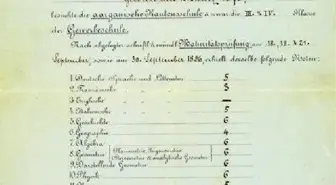 besuchte die aargauische Kantonsschule & zwar die III. & IV. Klasse
der Gewerbeschule.
Nach abgelegter schriftl. & mündl. Maturitätsprüfung am 18., 19. & 21.
September, sowie am 30. September 1896, erhielt derselbe folgende Noten:
1. Deutsche Sprache und Litteratur 5
2. Französische 3
3. Englische —
4. Italienische 5
5. Geschichte 6
6. Geographie 4
7. Algebra 6
8. Geometrie (Planimetrie, Trigonometrie, Stereometrie & analytische Geometrie) 6
9. Darstellende Geometrie 6
10. Physik 6